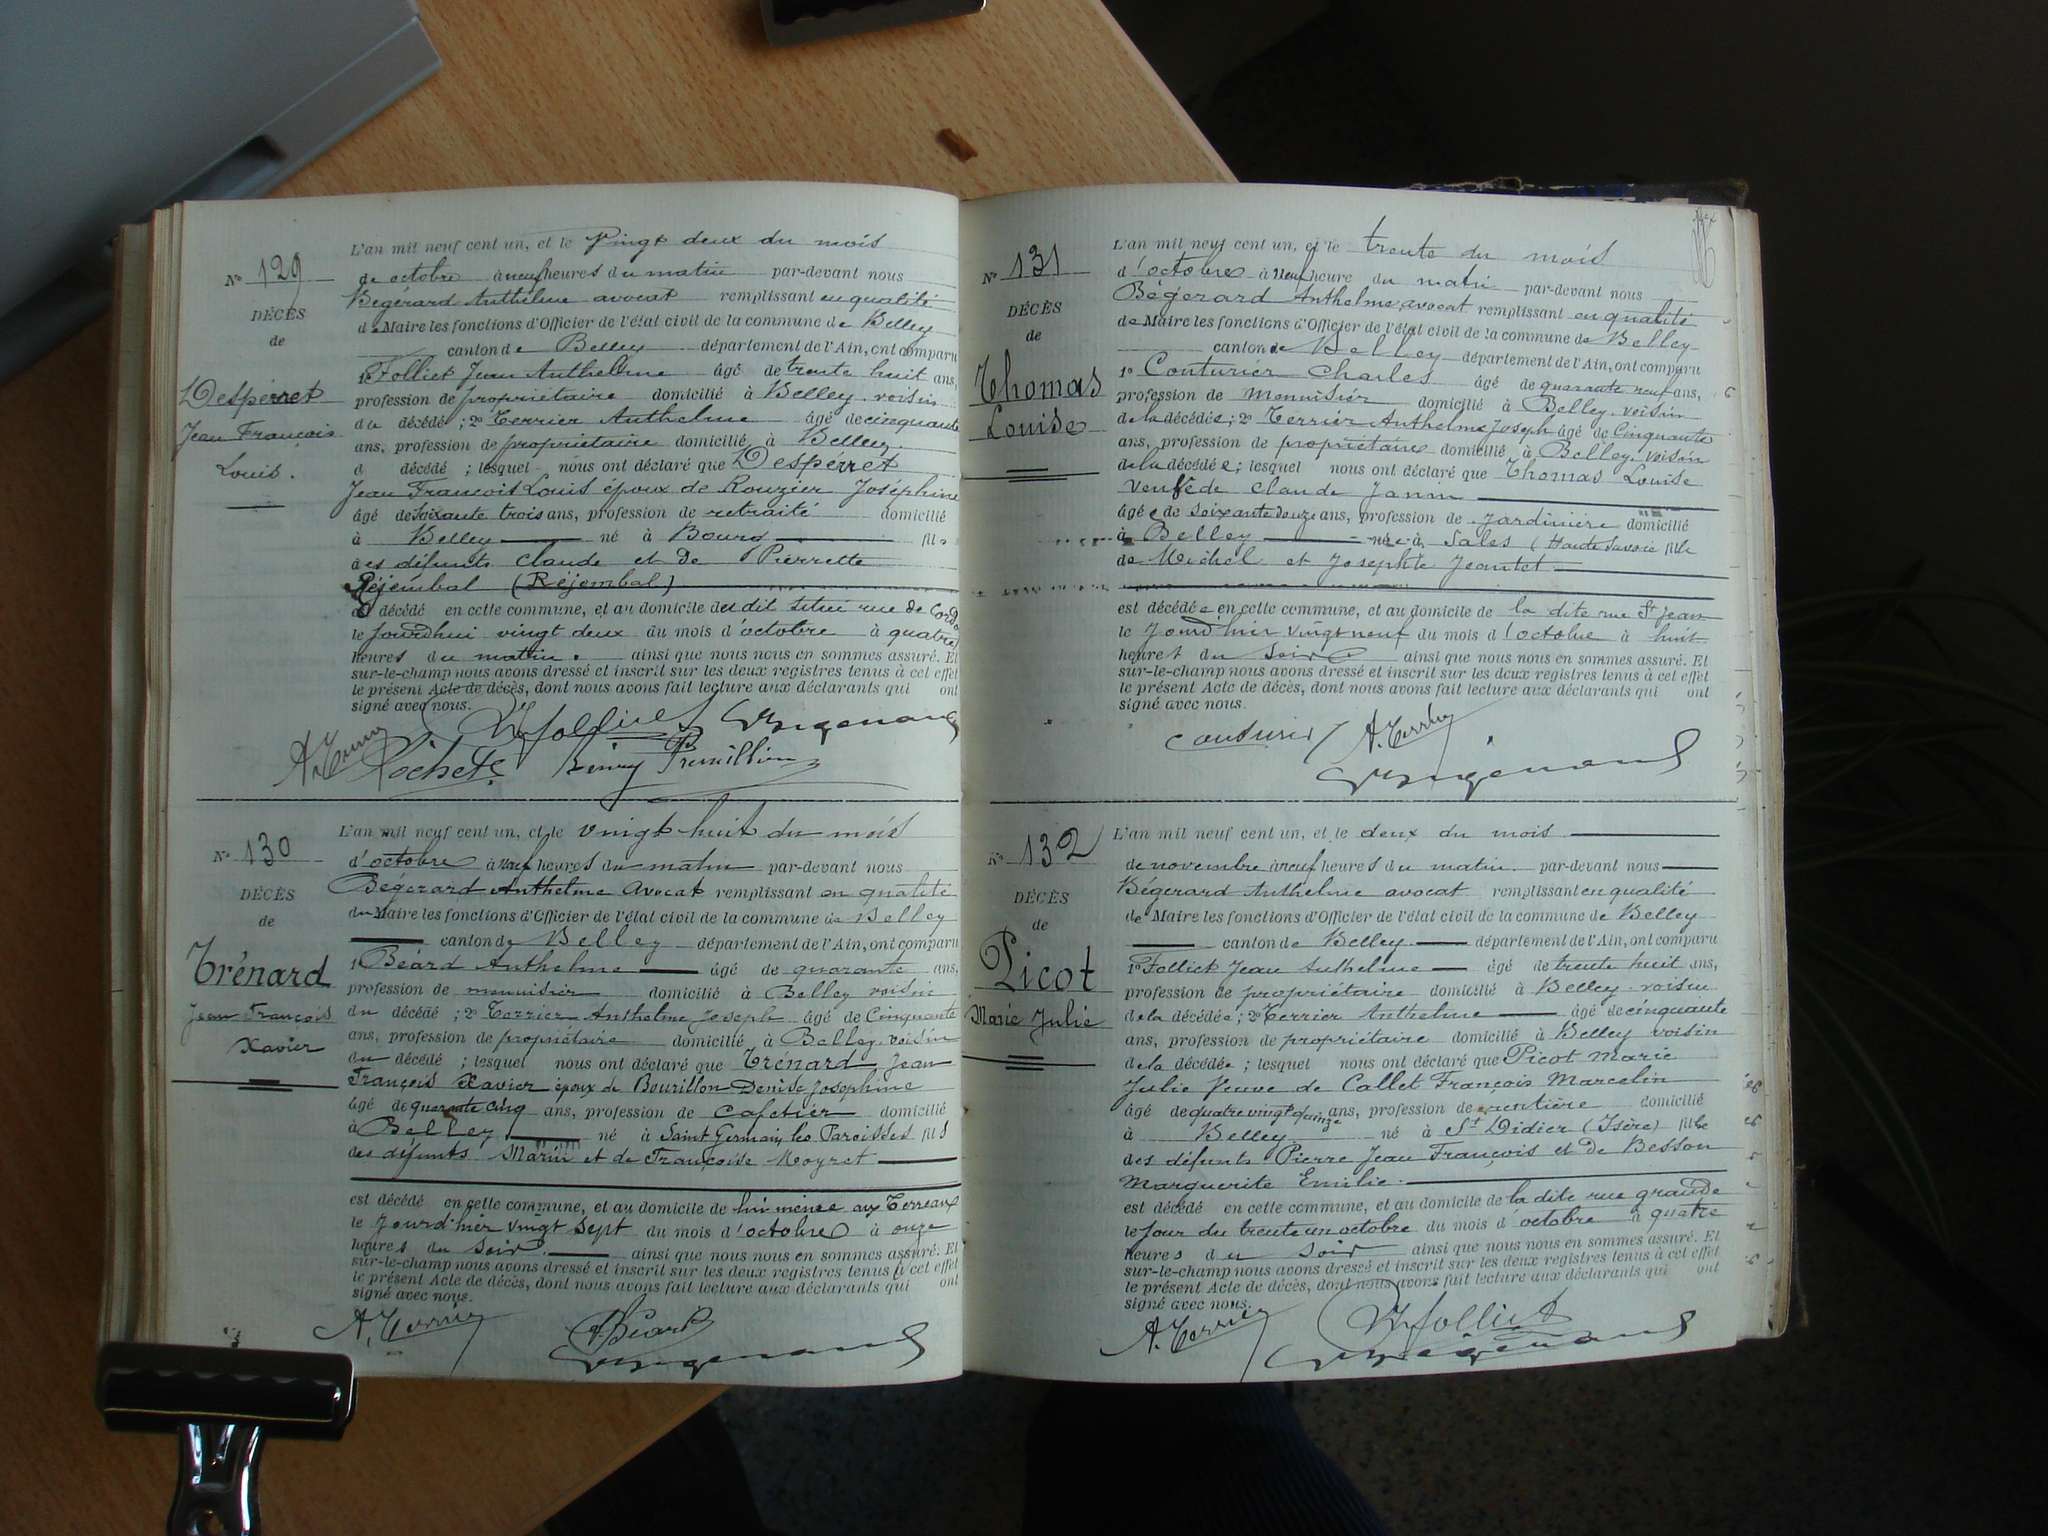 N° 129
DÉCÈS
de
Despérret
Jean François
Louis.
L'an mil neuf cent un, et le Vingt deux du mois
de octobre à neuf heures du matin par-devant nous
Bégérard Anthelme avocat remplissant en qualité
de Maire les fonctions d'Officier de l'état civil de la commune de Belley
canton de Belley département de l'Ain, ont comparu
1° Folliet Jean Anthelme âgé de trente huit ans,
profession de propriétaire domicilié à Belley voisin
du décédé ; 2° Terrier Anthelme âgé de cinquante
ans, profession de propriétaire domicilié à Belley
d décédé ; lesquel nous ont déclaré que Despérrét
Jean François Louis époux de Rouzier Joséphine
âgé de soixante trois ans, profession de retraité domicilié
à Belley né à Bourg fils
des défunts Claude et De Pierrette
Réjembal (Réjembal)
est décédé en cette commune, et au domicile du dit situé rue de Cordo
le Jourdhui vingt deux du mois d'octobre à quatre
heures du matin. ainsi que nous nous en sommes assuré. Et
sur-le-champ nous avons dressé et inscrit sur les deux registres tenus à cet effet
le présent Acte de décès, dont nous avons fait lecture aux déclarants qui ont
signé avec nous.
A. Terrier Rochet Folliet
N° 130
DÉCÈS
de
Trénard
Jean François
Xavier
L'an mil neuf cent un, et le vingt huit du mois
d'octobre à neuf heures du matin par-devant nous
Bégerard Anthelme Avocat remplissant en qualité
du Maire les fonctions d'Officier de l'état civil de la commune de Belley
canton de Belley département de l'Ain, ont comparu
1° Béard Anthelme âgé de quarante ans,
profession de menuisier domicilié à Belley voisin
du décédé ; 2° Terrier Anthelme Joseph âgé de Cinquante
ans, profession de propriétaire domicilié à Belley voisin
du décédé ; lesquel nous ont déclaré que Trénard Jean
François Xavier époux de Bourillon Denise Josephine
âgé de quarante cinq ans, profession de cafetier domicilié
à Belley né à Saint Germain les Paroisses fils
des défunts Marin et de Françoise Moyret
est décédé en cette commune, et au domicile de lui même aux Terreaux
le Jourd'hier vingt sept du mois d'octobre à onze
heures du soir ainsi que nous nous en sommes assuré. Et
sur-le-champ nous avons dressé et inscrit sur les deux registres tenus à cet effet
le présent Acte de décès, dont nous avons fait lecture aux déclarants qui ont
signé avec nous.
A. Terrier Béard
N° 131
DÉCÈS
de
Thomas
Louise
L'an mil neuf cent un, et le trente du mois
d'octobre à neuf heure du matin par-devant nous
Bégerard Anthelme avocat remplissant en qualité
de Maire les fonctions d'Officier de l'état civil de la commune de Belley
canton de Belley département de l'Ain, ont comparu
1° Couturier Charles âgé de quarante neuf ans,
profession de Menuisier domicilié à Belley voisin
de la décédée ; 2° Terrier Anthelme Joseph âgé de Cinquante
ans, profession de propriétaire domicilié à Belley voisin
de la décédée ; lesquel nous ont déclaré que Thomas Louise
veuve de Claude Janin
âgée de soixante douze ans, profession de Jardinière domicilié
à Belley née à Sales (Haute Savoie fille
de Michel et Josephte Jeantet
est décédée en cette commune, et au domicile de la dite rue St Jean
le Jourd'hier vingt neuf du mois d'octobre à huit
heures du soir ainsi que nous nous en sommes assuré. Et
sur-le-champ nous avons dressé et inscrit sur les deux registres tenus à cet effet
le présent Acte de décès, dont nous avons fait lecture aux déclarants qui ont
signé avec nous.
Couturier A. Terrier
N° 132
DÉCÈS
de
Picot
Marie Julie
L'an mil neuf cent un, et le deux du mois
de novembre à neuf heures du matin par-devant nous
Bégerard Anthelme avocat remplissant en qualité
de Maire les fonctions d'Officier de l'état civil de la commune de Belley
canton de Belley département de l'Ain, ont comparu
1° Folliet Jean Anthelme âgé de trente huit ans,
profession de propriétaire domicilié à Belley voisin
de la décédée ; 2° Terrier Anthelme âgé de cinquante
ans, profession de propriétaire domicilié à Belley voisin
de la décédée ; lesquel nous ont déclaré que Picot Marie
Julie Veuve de Callet François Marcelin
âgé de quatre vingt quinze ans, profession de rentière domicilié
à Belley né à St Didier (Isère) fille
des défunts Pierre Jean François et de Besson
Marguerite Emilie.
est décédé en cette commune, et au domicile de la dite rue grande
le Jour du trente un octobre du mois d'octobre à quatre
heures du soir ainsi que nous nous en sommes assuré. Et
sur-le-champ nous avons dressé et inscrit sur les deux registres tenus à cet effet
le présent Acte de décès, dont nous avons fait lecture aux déclarants qui ont
signé avec nous.
A. Terrier Folliet